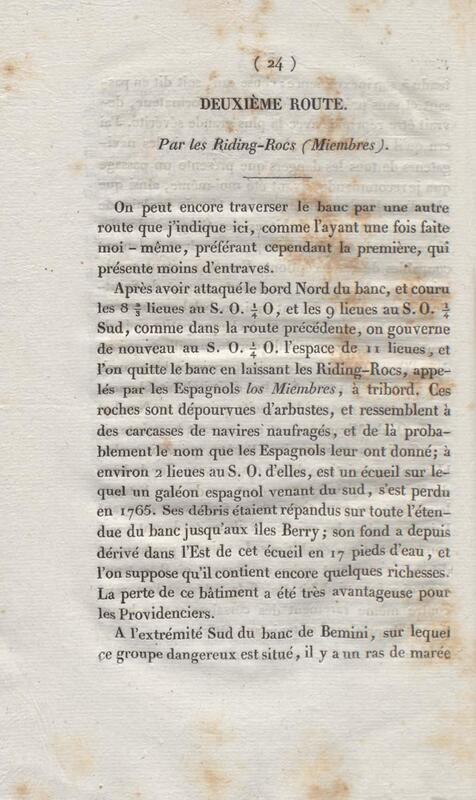 ( 24 )
DEUXIÈME ROUTE.
Par les Riding-Rocs (Miembres).
On peut encore traverser le banc par une autre
route que j'indique ici, comme l'ayant une fois faite
moi-même, préférant cependant la première, qui
présente moins d'entraves.
Après avoir attaqué le bord Nord du banc, et couru
les 8 2/3 lieues au S. O. 1/4 O, et les 9 lieues au S. O. 1/4
Sud, comme dans la route précédente, on gouverne
de nouveau au S. O. 1/4 O. l'espace de 11 lieues, et
l'on quitte le banc en laissant les Riding-Rocs, appe-
lés par les Espagnols los Miembres, à tribord. Ces
roches sont dépourvues d'arbustes, et ressemblent à
des carcasses de navires naufragés, et de là proba-
blement le nom que les Espagnols leur ont donné; à
environ 2 lieues au S. O. d'elles, est un écueil sur le-
quel un galéon espagnol venant du sud, s'est perdu
en 1765. Ses débris étaient répandus sur toute l'éten-
due du banc jusqu'aux îles Berry; son fond a depuis
dérivé dans l'Est de cet écueil en 17 pieds d'eau, et
l'on suppose qu'il contient encore quelques richesses.
La perte de ce bâtiment a été très avantageuse pour
les Providenciers.
A l'extrémité Sud du banc de Bemini, sur lequel
ce groupe dangereux est situé, il y a un ras de marée